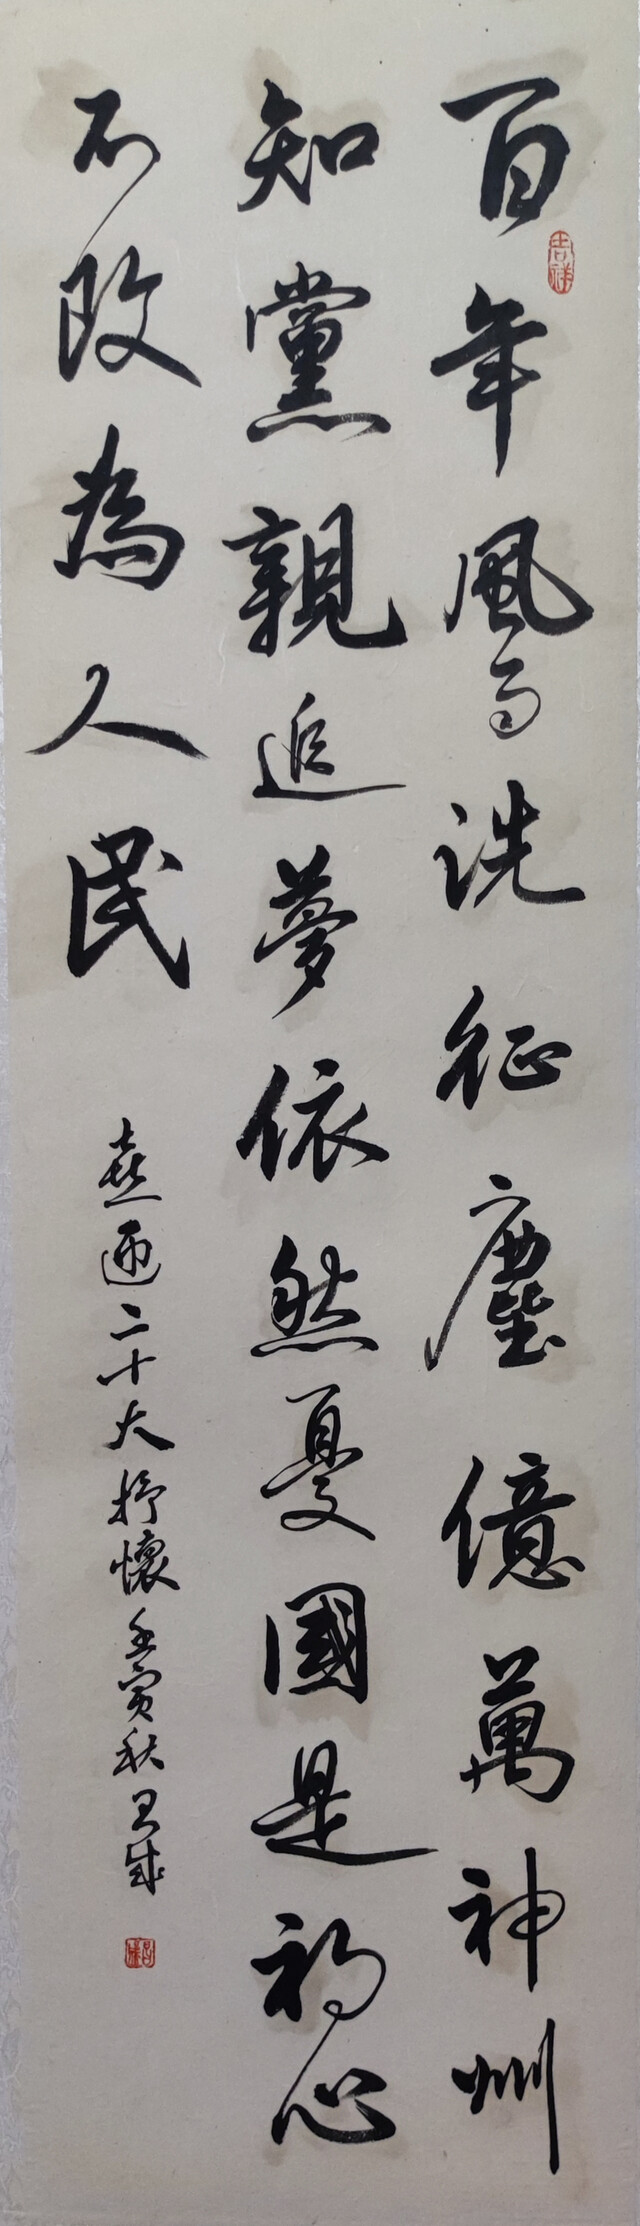 百年風雨洗征塵億萬神州
知黨親追夢依然憂國是初心
不改為人民
喜迎二十大抒懷壬寅秋昌成
吉祥